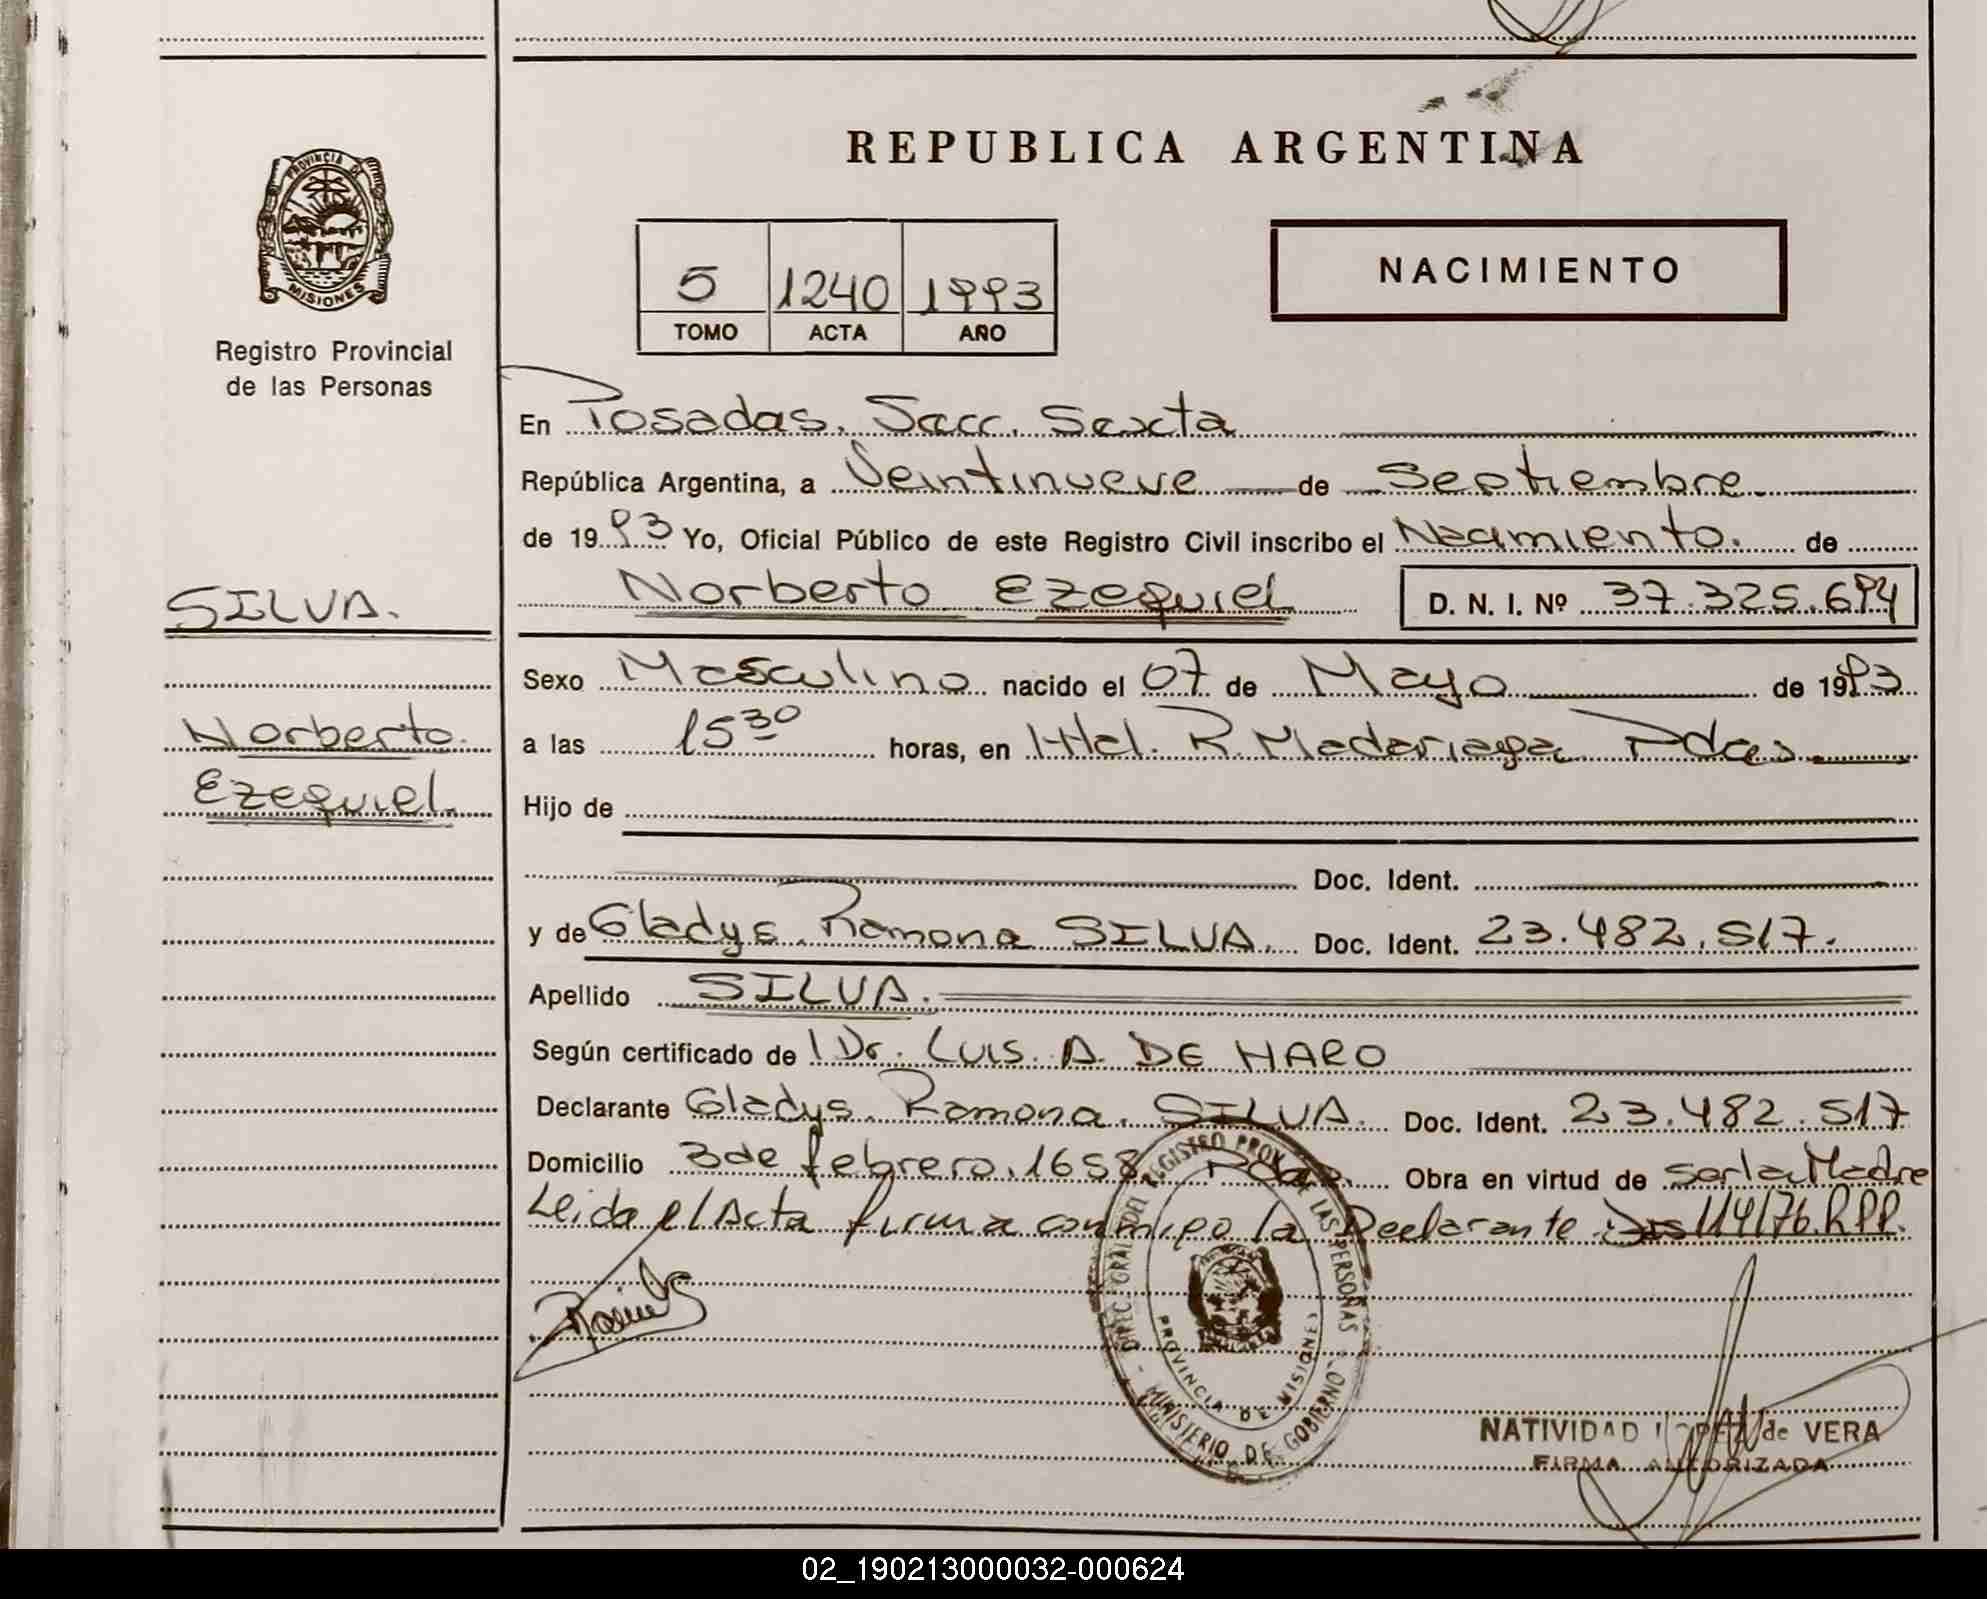 REPUBLICA ARGENTINA
PROVINCIA DE
MISIONES
Registro Provincial
de las Personas
5 1240 1993
TOMO ACTA AÑO
NACIMIENTO
En Posadas. Secc. Sexta
República Argentina, a Veintinueve de Septiembre
de 1993 Yo, Oficial Público de este Registro Civil inscribo el Nacimiento. de
SILVA.
Norberto Ezequiel D. N. I. Nº 37.325.694
Sexo Masculino nacido el 07 de Mayo de 1993
Norberto
a las 15 30 horas, en Htal. R. Madariaga Pdas
Ezequiel
Hijo de
Doc. Ident.
y de Gladys Ramona SILVA. Doc. Ident. 23.482.517.
Apellido SILVA.
Según certificado de Dr. LUIS. A. DE HARO
Declarante Gladys. Ramona. SILVA. Doc. Ident. 23.482.517
Domicilio 3 de febrero. 1658 Pdas. Obra en virtud de ser la Madre
Leida el Acta firma conmigo la Declarante Dis 114/76. RPP.
DIREC. GRAL. DEL REGISTRO PROV. DE LAS PERSONAS
PROVINCIA DE MISIONES
MINISTERIO DE GOBIERNO
NATIVIDAD LOPEZ de VERA
FIRMA AUTORIZADA
02_190213000032-000624